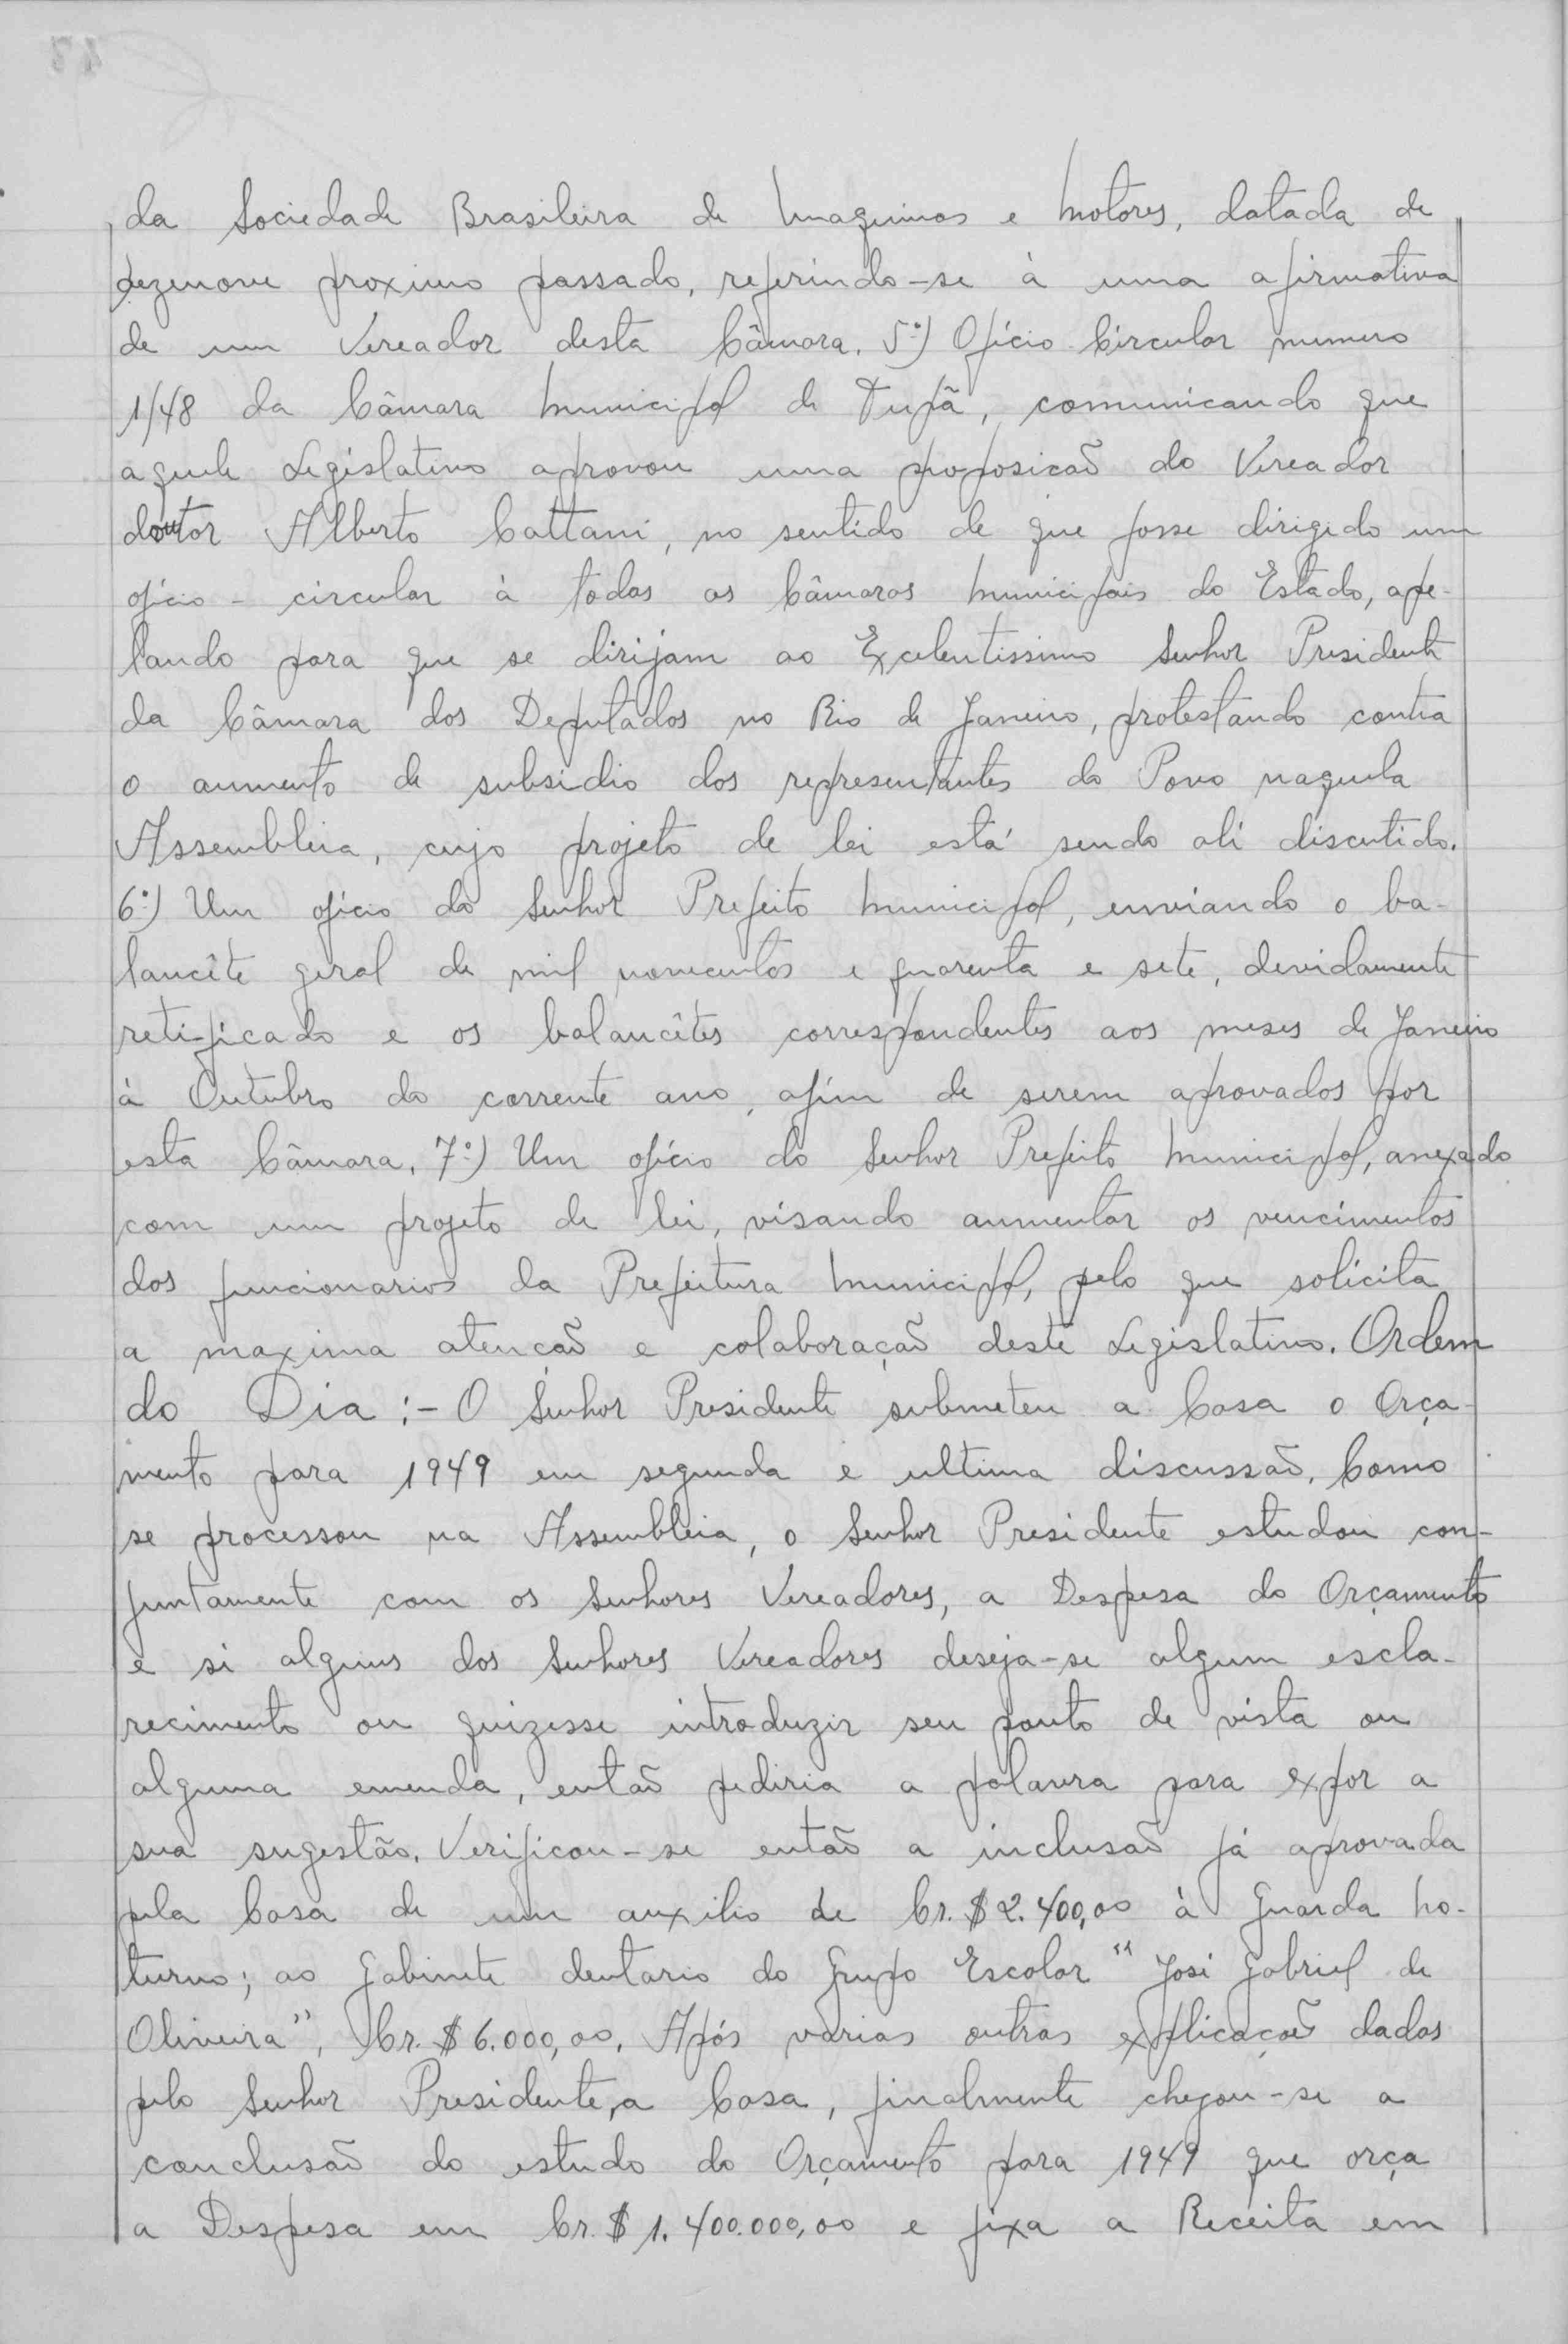 da Sociedade Brasileira de Maquinas e Motores, datada de
dezenove proximo passado, referindo-se à uma afirmativa
de um Vereador desta Câmara. 5º) Ofício Circular numero
1/48 da Câmara Municipal de Tupã, comunicando que
aquele Legislativo aprovou uma proposicaõ do Vereador
doutor Alberto Cattani, no sentido de que fosse dirigido um
oficio - circular à todas as Câmaras Municipais do Estado, ape-
lando para que se dirijam ao Excelentissimo Senhor Presidente
da Câmara dos Deputados no Rio de Janeiro, protestando contra
o aumento de subsidio dos representantes do Povo naquela
Assembleia, cujo projeto de lei está sendo ali discutido.
6º) Um ofício do Senhor Prefeito Municipal, enviando o ba-
lancête geral de mil novecentos e quarenta e sete, devidamente
retificado e os balancêtes correspondentes aos meses de Janeiro
à Outubro do corrente ano, afim de serem aprovados por
esta Câmara. 7º) Um ofício do Senhor Prefeito Municipal, anexado
com um projeto de lei, visando aumentar os vencimentos
dos funcionarios da Prefeitura Municipal, pelo que solicita
a maxima atençaõ e colaboraçaõ deste Legislativo. Ordem
do Dia :- O Senhor Presidente submeteu a Casa o Orça-
mento para 1949 em segunda e ultima discussaõ. Como
se processou na Assembleia, o Senhor Presidente estudou con-
juntamente com os Senhores Vereadores, a Despesa do Orçamento
e si alguns dos Senhores Vereadores deseja-se algum escla-
recimento ou quizesse introduzir seu ponto de vista ou
alguma emenda, entaõ pediria a palavra para expor a
sua sugestão. Verificou-se entaõ a inclusaõ já aprovada
pela Casa de um auxilio de Cr. $ 2.400,00 à Guarda No-
turno; ao Gabinete dentario do Grupo Escolar "José Gabriel de
Oliveira", Cr. $ 6.000,00. Após varias outras explicaçoẽs dadas
pelo Senhor Presidente, a Casa, finalmente chegou-se a
conclusaõ do estudo do Orçamento para 1949 que orça
a Despesa em Cr. $ 1.400.000,00 e fixa a Receita em